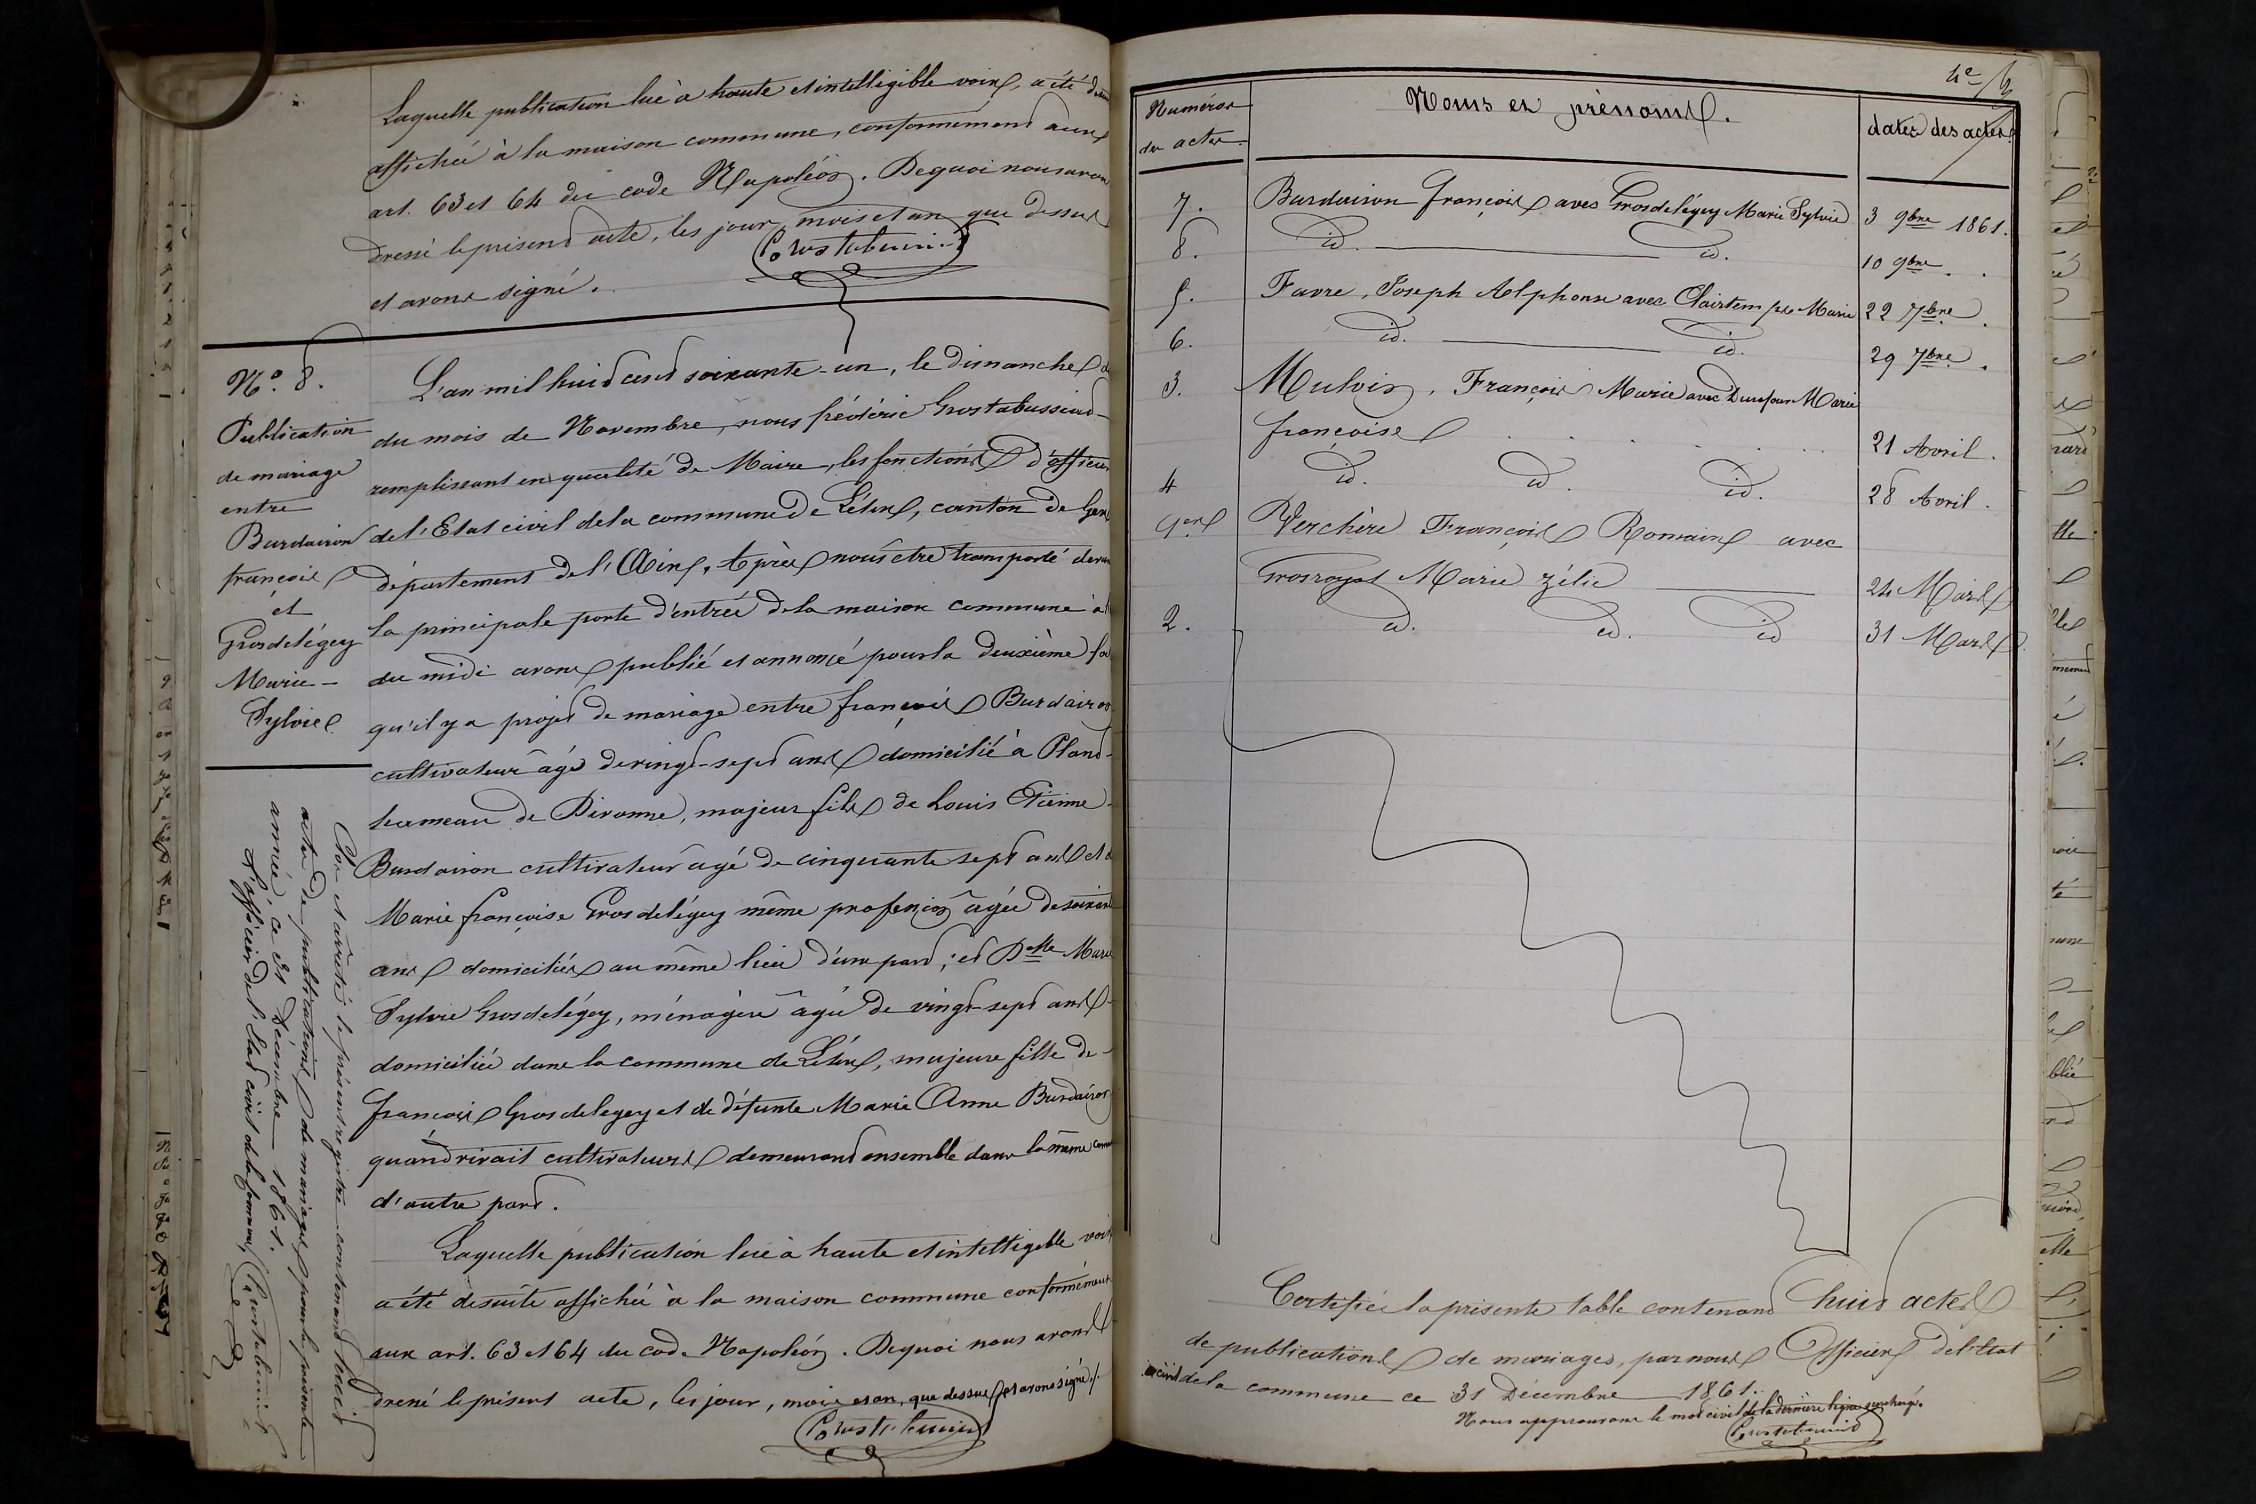 Laquelle publication lue à haute et intelligible voix, a été
affichée à la maison commune, conformement aux
art. 63 et 64 du code Napoléon. De quoi nous avons
dressé le présent acte, les jour, mois et an que dessus
et avons signé.
Grostabussiat
N.o 8.
Publication
de mariage
entre
Burdairon
françois
et
Grosdelégey
Marie-
Sylvie
L'an mil huit cent soixante-un, le dimanche
du mois de Novembre, nous frédéric Grostabussiat
remplissant en qualité de Maire, les fonctions d'officier
de l'Etat civil de la commune de Lélex, canton de Gex
département de l'Ain, Après nous être transporté devan
la principale porte d'entrée de la maison commune à
du midi avons publié et annoncé pour la deuxième fo
qu'il y a projet de mariage entre françois Burdairon
cultivateur âgé de vingt-sept ans domicilié à Pland
hameau de Divonne, majeur fils de Louis Etienne
Burdairon cultivateur âgé de cinquante sept ans et
Marie françoise Grosdelégey même profession âgée de soixan
ans domiciliés au même lieu d'une part; et Dlle Marie
Sylvie Grosdelégey, ménagère âgée de vingt-sept ans
domiciliée dans la commune de Lélex, majeure fille de
françois Grosdelegey et de défunte Marie Anne Burdairon
quand vivait cultivateurs demeurant ensemble dans la même com
d'autre part.
Laquelle publication lue à haute et intelligible voix
a été desuite affichée à la maison commune conformément
aux art. 63 et 64 du cod. Napoléon. De quoi nous avons
dressé le présent acte, les jour, mois et an, que dessus et avons signé./.
Grostabussiat
Clos et arrêté le présent registre contenant huit
actes de publications de mariages pour la présente
année, ce 31 Décembre 1861.
L'officier de l'Etat civil de la commune,
Grostabussiat
Numéros
des actes
Noms et prénoms.
dates des actes
7. Burdairon françois avec Grosdelégey Marie Sylvie 3 9bre 1861.
8. id. id. 10 9bre.
5. Favre, Joseph Alphonse avec Clairtemps Marie 22 7bre.
6. id. id. 29 7bre.
3. Mulvis, François Marie avec Dufour Marie
françoise 21 Avril.
4 id. id. id. 28 Avril.
1er Verchère François Romain avec
Grosroyat Marie Zélie 24 Mars
2. id. id. id 31 Mars
Certifiée la présente table contenant huit actes
de publications de mariages, par nous Officier de l'Etat
civil de la commune ce 31 Décembre 1861.
Nous approuvons le mot civil de la dernière ligne surchargé.
Grostabussiat